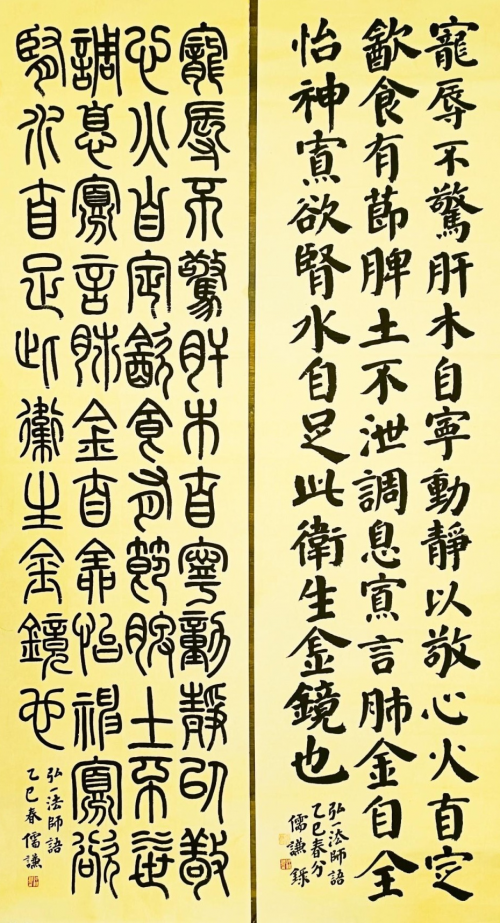 寵辱不驚肝木自寧動靜以敬心火自定
㱃食有節脾土不泄調息寡言肺金自全
怡神寡欲腎水自足此衛生金鏡也
弘一法師語
乙巳春分
儒謙錄
寵辱不驚肝木自寧動靜以敬
心火自定㱃食有節脾土不泄
調息寡言肺金自全怡神寡欲
腎水自足此衛生金鏡也
弘一法師語
乙巳春儒謙